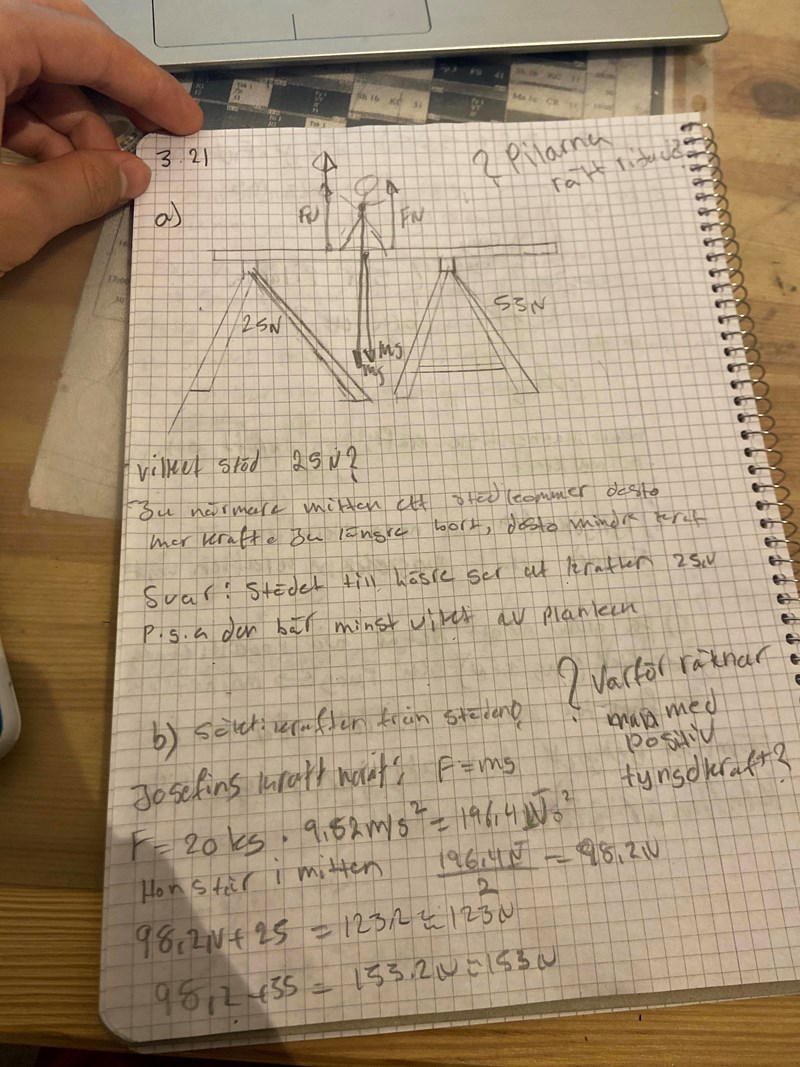 3.21
? Pilarna
rätt ritade?
a)
FN
FN
25N
53N
mg
mg
vilket stöd 25N?
Ju närmare mitten ett stöd kommer desto
mer kraft. Ju längre bort, desto mindre kraft
Svar: Stödet till höger ger ut kraften 25N
P.g.a den bär minst vikt av plankan
? Varför räknar
man med
positiv
tyngdkraft?
b) Sökt: kraften från stöden?
Josefins kraft nedåt: F=mg
F = 20 kg · 9,82 m/s² = 196,4 N
Hon står i mitten 196,4N / 2 = 98,2N
98,2N + 25 = 123,2 ≈ 123N
98,2 + 55 = 153.2N ≈ 153N